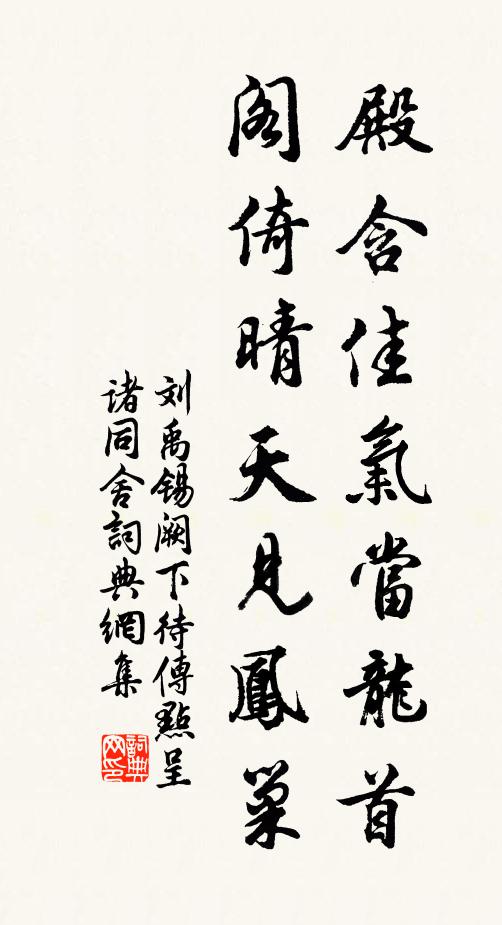 殿含佳氣當龍首
阁倚晴天見鳳巢
刘禹锡阙下待傳點呈
诸同舍詞典網集
詞典网印